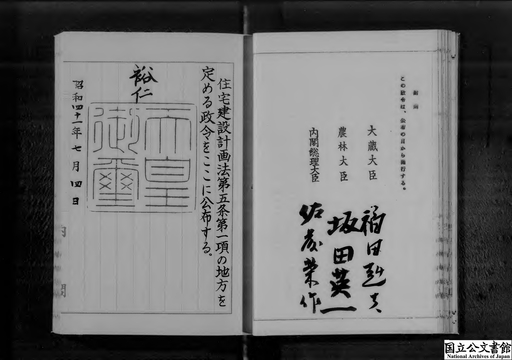 住宅建設計画法第五条第一項の地方を
定める政令をここに公布する。
裕仁
天皇
御璽
昭和四十一年七月四日
附則
この政令は、公布の日から施行する。
大蔵大臣 福田赳夫
農林大臣 坂田英一
内閣総理大臣 佐藤榮作
国立公文書館
National Archives of Japan